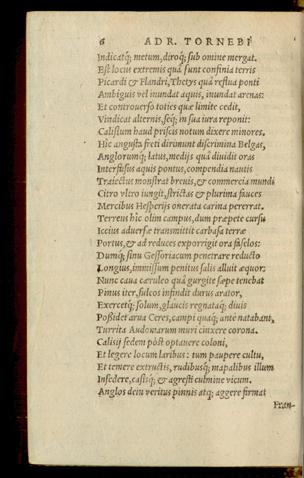 6 ADR. TORNEBI
Indicatq; metum, diroq; sub omine mergat.
Est locus extremis quâ sunt confinia terris
Picardi & Flandri, Thetys quà reflua ponti
Ambiguis vel inundat aquis, inundat arenas:
Et controuerso toties quæ limite cedit,
Vindicat alternis, seq; in sua iura reponit:
Calisium haud priscis notum dixere minores.
Hîc angusta freti dirimunt discrimina Belgas,
Anglorumq; latus, medijs quâ diuidit oras
Intersusus aquis pontus, compendia nautis
Traiectus monstrat breuis, & commercia mundi
Citro vltro iungit, strictas & plurima fauces
Mercibus Hesperijs onerata carina pererrat.
Terreus hîc olim campus, dum præpete cursu
Iccius aduersæ transmittit carbasa terræ
Portus, & ad reduces exporrigit ora faselos:
Dumq; sinu Gessoriacum penetrare reducto
Longius, immissum penitus salis alluit æquor:
Nunc caua cæruleo quâ gurgite sæpe tenebat
Pinus iter, sulcos infindit durus arator,
Exercetq; solum, glaucis regnataq; diuis
Possidet arua Ceres, campi quáq; antè natabant,
Turrita Audomarum muri cinxere corona.
Calisij sedem pòst optauere coloni,
Et legere locum laribus: tum paupere cultu,
Et temere extructis, rudibusq; mapalibus illum
Insedere, casisq; & agresti culmine vicum.
Anglos dein veritus pinnis atq; aggere firmat
Fran-